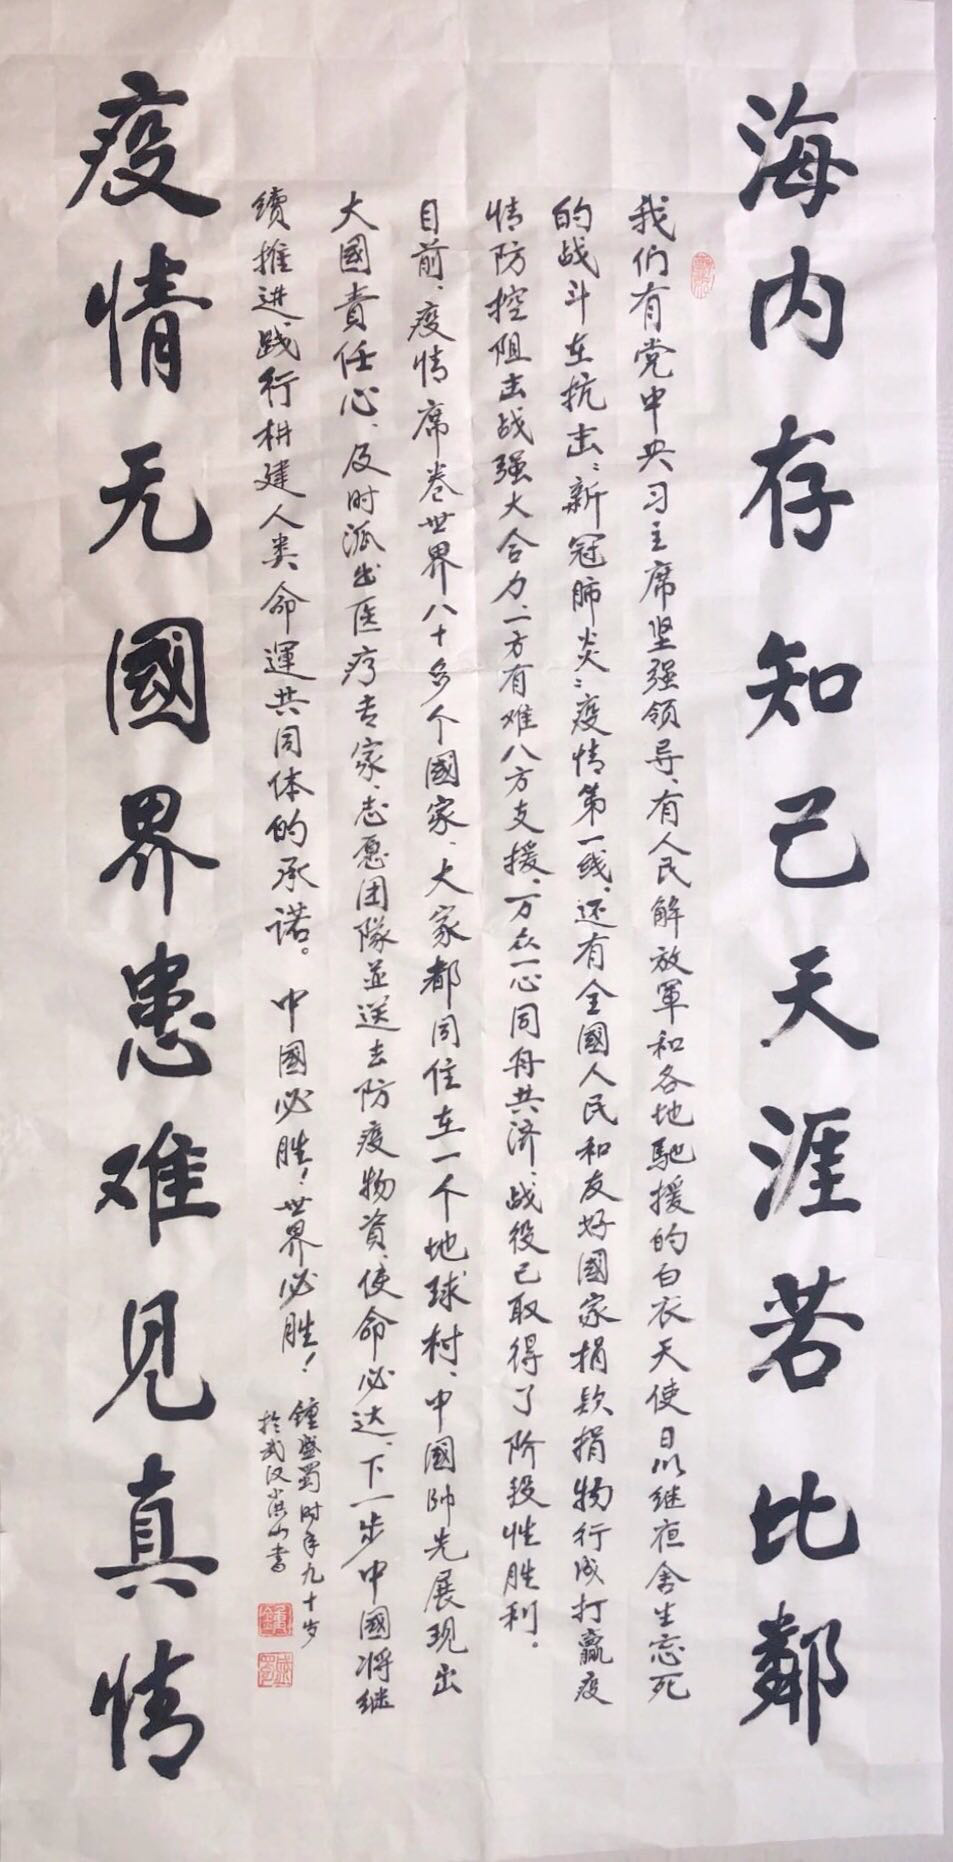 海内存知己天涯若比鄰
我们有党中央习主席坚强领导、有人民解放軍和各地馳援的白衣天使日以继夜舍生忘死
的战斗在抗击：新冠肺炎：疫情第一线、还有全國人民和友好國家捐款捐物行成打赢疫
情防控阻击战强大合力、一方有难八方支援、万众一心同舟共济、战役已取得了阶段性胜利。
目前、疫情席卷世界八十多个國家、大家都同住在一个地球村、中國帅先展现出
大國責任心、及时派出医疗专家、志愿团隊並送去防疫物资、使命必达、下一步中國将继
續推进践行構建人类命運共同体的承诺。中國必胜！世界必胜！
鍾盛蜀时年九十岁
於武汉洪山書
疫情无國界患难见真情